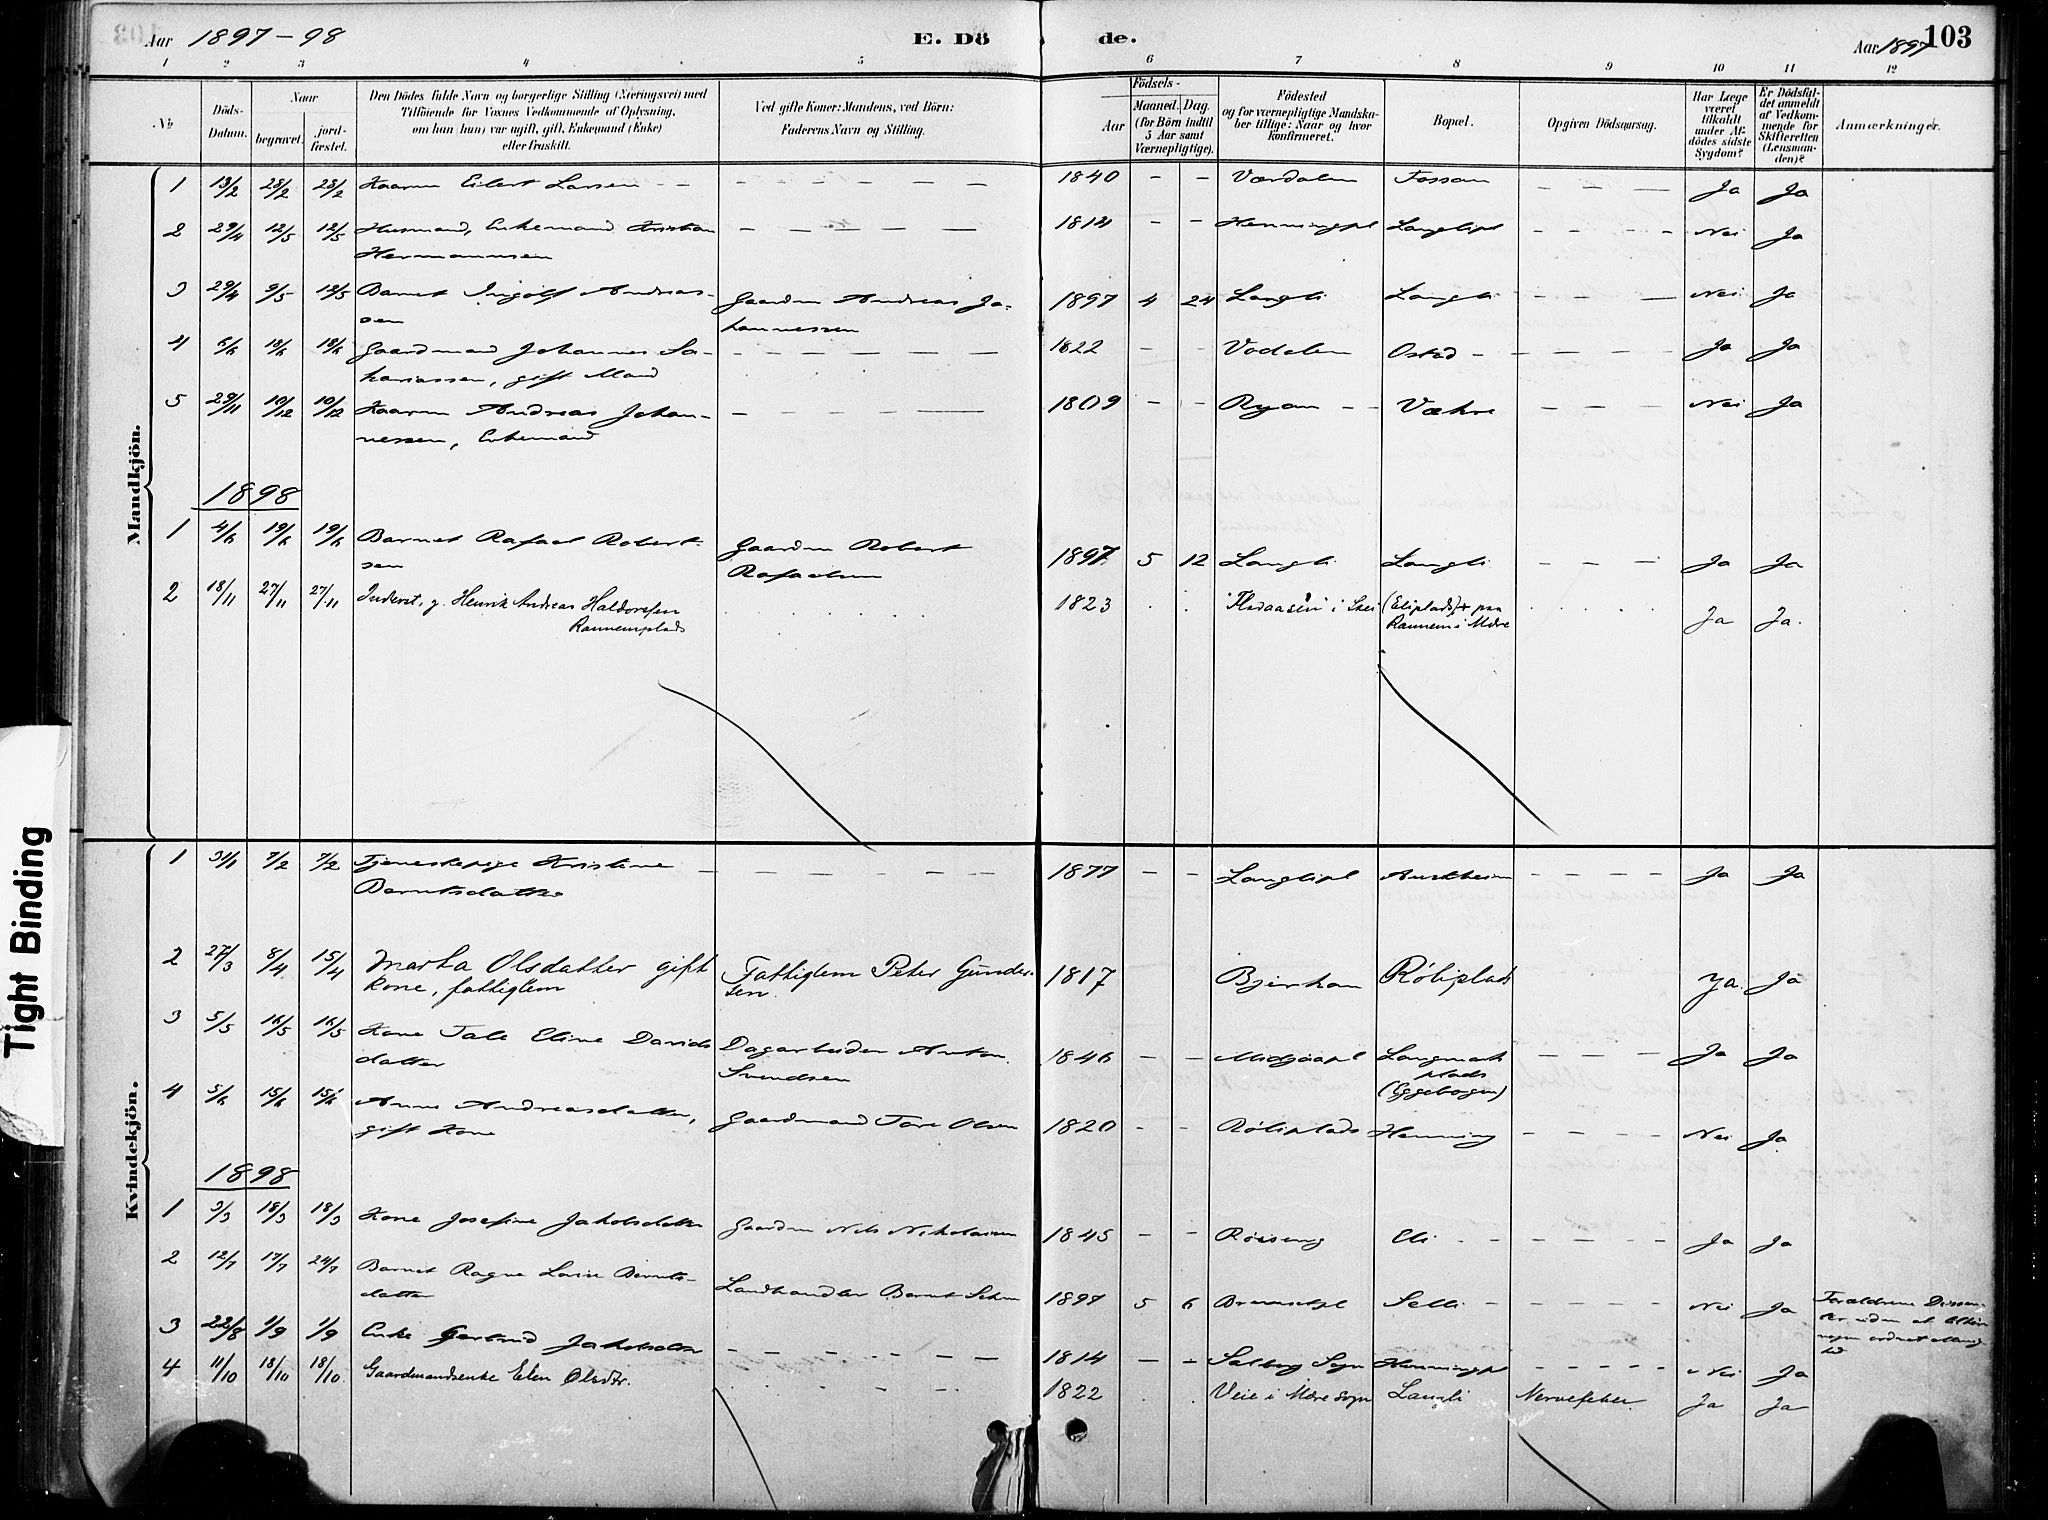 Aar 1897-98
E. Dö
de.
Aar 1897
103
1 2 3 4 5 6 7 8 9 10 11 12
Nº
Döds-Datum.
Naar
begravet.
jord-fæstet.
Den Dödes fulde Navn og borgerlige Stilling (Næringsvei) med
Tilföiende for Voxnes Vedkommende af Oplysning,
om han (hun) var ugift, gift, Enkemand (Enke)
eller fraskilt.
Ved gifte Koner: Mandens, ved Börn:
Faderens Navn og Stilling.
Födsels-
Aar
Maaned. Dag.
(for Börn indtil
5 Aar samt
Værnepligtige).
Födested
og for værnepligtige Mandska-
ber tillige: Naar og hvor
konfirmeret.
Bopæl.
Opgiven Dödsaarsag.
Har Læge
været
tilkaldt
under Af-
dödes sidste
Sygdom?
Er Dödsfal-
det anmeldt
af Vedkom-
mende for
Skifteretten
(Lensman-
den)?
Anmærkninger.
Mandkjön.
1 13/2 28/2 28/2 Kaarm Eilert Larsen - - 1840 - - Værdalen Fossan - - - Ja Ja
2 29/4 12/5 12/5 Husmand, Enkemand Kristian 1814 - - Henningpl Langlipl - - - - Nei Ja
Hermannsen
3 29/4 9/5 12/5 Barnet Ingolf Andreas- Gaardm Andreas Jo- 1897 4 24 Langli Langli - - - Nei Ja
sen hannessen
4 5/6 18/6 18/6 Gaardmand Johannes Sa- 1822 - - Ostad - - - - Ja Ja
kariassen, gift Mand
5 29/11 10/12 10/12 Kaarm Andreas Johan- 1809 - - Ryan - - Væhre - - - Nei Ja
nessen, Enkemand
1898
1 4/6 19/6 19/6 Barnet Rafael Robert- Gaardm Robert 1897 5 12 Langli Langli - - - Ja Ja
sen Rafaelsen
2 18/11 27/11 27/11 Inderst, g. Henrik Andreas Haldorsen 1823 . . i Skei (Eliplads) + paa Ja Ja.
Rannemplads Rannem i Mære
Tight Binding
Kvindekjön.
1 31/1 7/2 7/2 Tjenestepige Kristine 1877 - - Langlipl - - - - Ja Ja
Berntsdatter
2 27/3 8/4 15/4 Marta Olsdatter gift Fattiglem Peter Gunder- 1817 Bjerkan Röliplads Ja. Ja
kone, fattiglem sen.
3 5/5 16/5 16/5 Kone Tale Eline Davids Dagarbeider Anton 1846 - - Midsjöapl Langmark - - - Ja Ja
datter Svendsen plads
(Eggebogen)
4 5/6 15/6 15/6 Anne Andreasdatter, Gaardmand Tore Olsen 1820 - - Röliplads Henning - - - - Nei Ja
gift Kone
1898
1 3/3 18/3 18/3 Kone Josefine Jakobsdatter Gaardm Nils Nikolaisen 1845 - - Röiseng Eli - - - - Ja Ja
2 12/7 17/7 24/7 Barnet Ragna Lovise Bernts- Landhandler Bernt 1897 5 6 Selli - - - - Nei Ja Forældrene Dissen-
datter
3 22/8 1/9 1/9 Enke Gertrud Jakobsdatter 1814 - - Salberg Sogn Henningpl - - - - Nei Ja
4 11/10 18/10 18/10 Gaardmandsenke Elen Olsdtr. 1822 . . Veie i Mære sogn Langli Nervefeber. Ja Ja